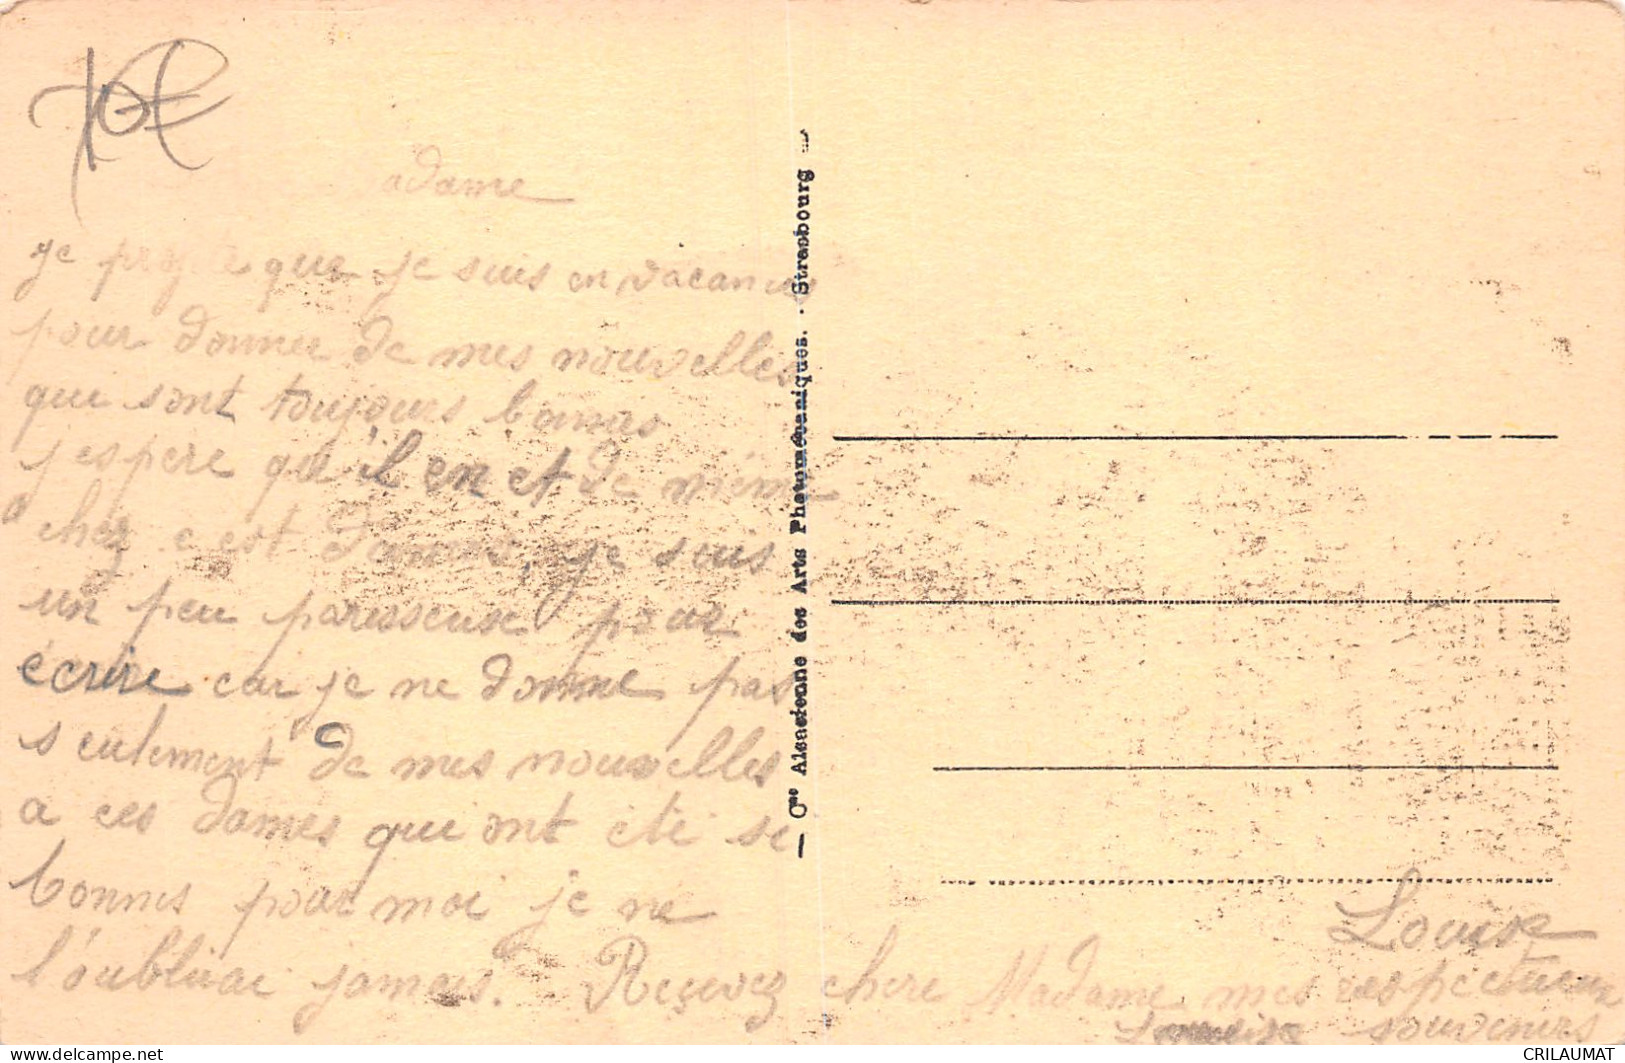 adame
je profite que je suis en vacances
pour donner de mes nouvelles
qui sont toujours bonnes
j espere qu'il en et de même
chez c est Dames, je suis
un peu paresseuse pour
écrire car je ne donne pas
seulement de mes nouvelles
a ces dames qui ont été si
bonnes pour moi je ne
l'oublirai jamais. Reçevez chere Madame mes respectueux
souvenirs
Louise
— Cie Alsacienne des Arts Photomécaniques. - Strasbourg —
delcampe.net
CRILAUMAT